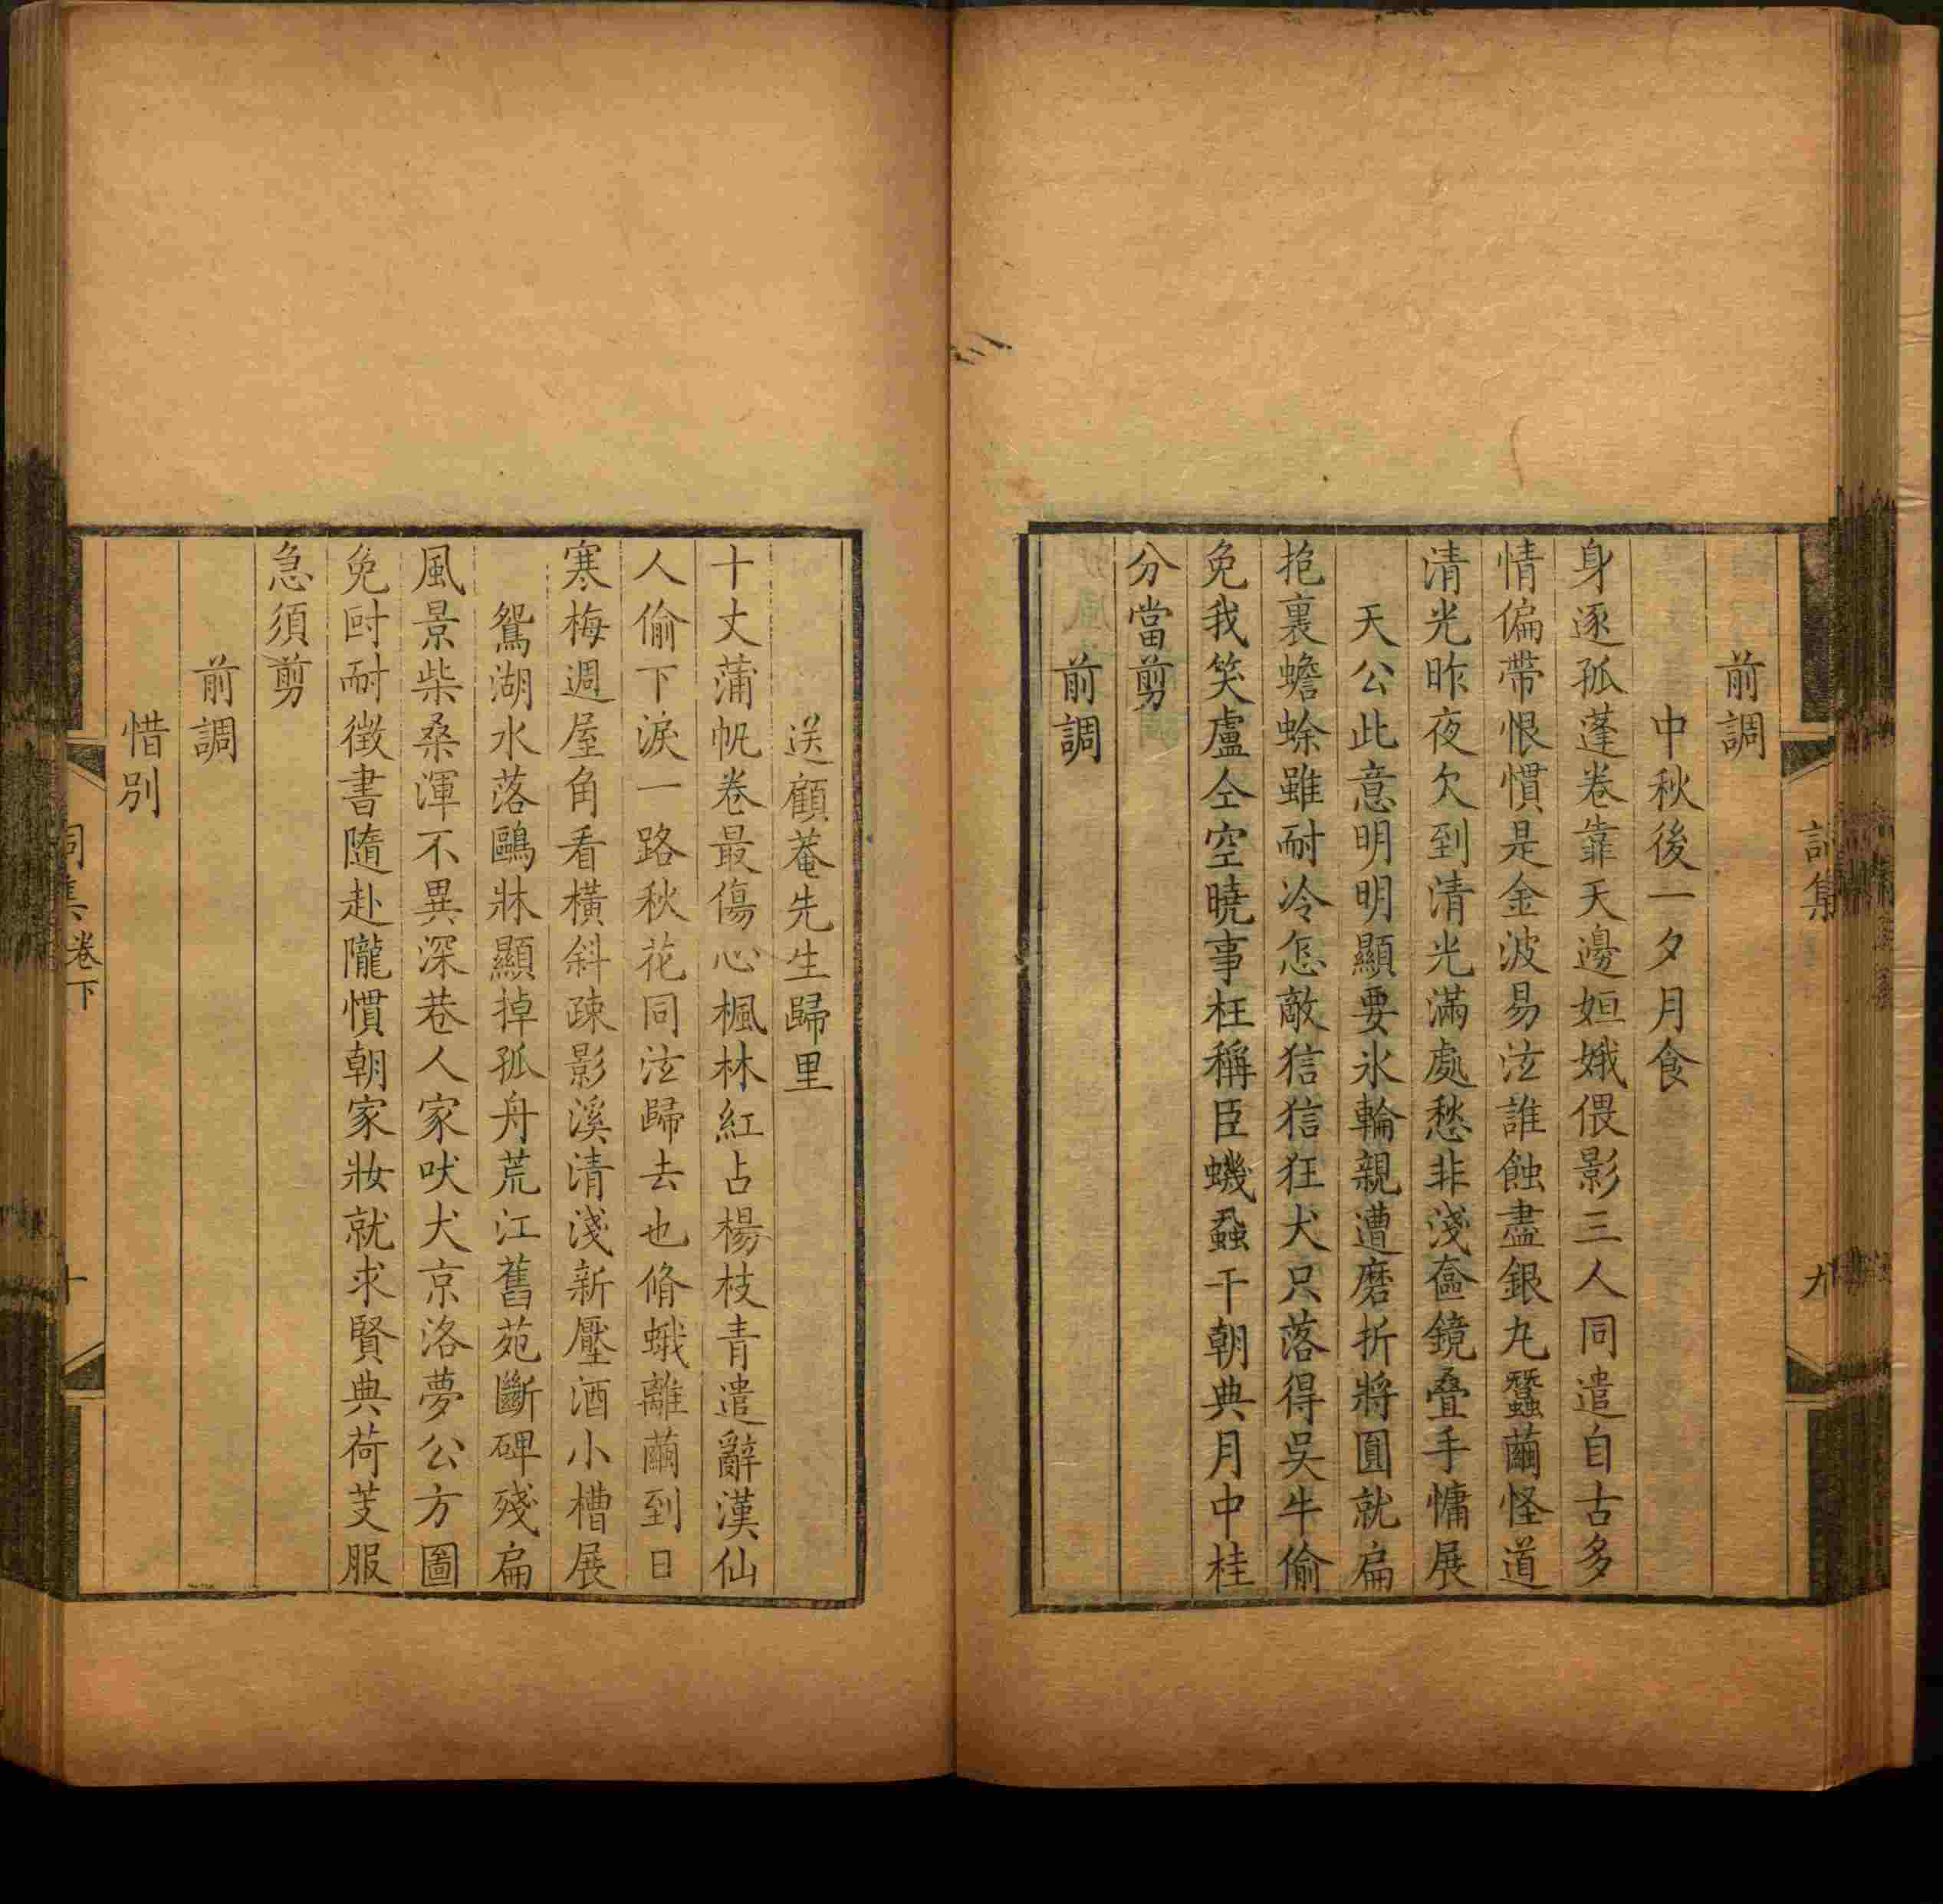 前調
中秋後一夕月食
身逐孤蓬卷靠天邊姮娥偎影三人同遣自古多
情偏帶恨慣是金波易泫誰蝕盡銀丸蠶繭怪道
清光昨夜欠到清光滿處愁非淺奩鏡疊手慵展
天公此意明明顯要氷輪親遭磨折將圓就扁
抱裏蟾蜍雖耐冷怎敵狺狺狂犬只落得吳牛偷
免我笑盧仝空曉事枉稱臣蟣蝨干朝典月中桂
分當剪
前調
送顧菴先生歸里
十丈蒲帆卷最傷心楓林紅占楊枝青遣辭漢仙
人偷下淚一路秋花同泫歸去也脩蛾離繭到日
寒梅週屋角看橫斜疎影溪清淺新壓酒小槽展
鴛湖水落鷗牀顯掉孤舟荒江舊苑斷碑殘扁
風景柴桑渾不異深巷人家吠犬京洛夢公方圖
免眮耐徵書隨赴隴慣朝家妝就求賢典荷芰服
急須剪
前調
惜別
詞集
九
詞集
卷下
十